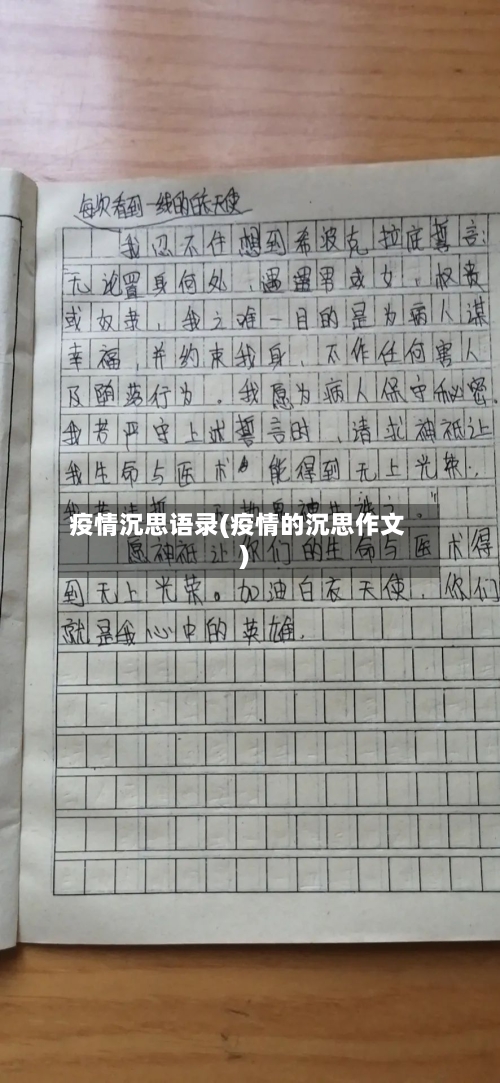 每次看到一线的白衣天使
我忍不住想到希波克拉底誓言:
无论置身何处，遇遇男或女，权贵
或奴隶，我之唯一目的是为病人谋
幸福，并约束我身，不作任何害人
及堕落行为。我愿为病人保守秘密。
我若严守上述誓言时，请求神祇让
我生命与医术能得到无上光荣.,
疫情沉思语录(疫情的沉思作文
)
愿神祇让你们的生命与医术得
到无上光荣。加油白衣天使，你们
就是我心中的英雄.